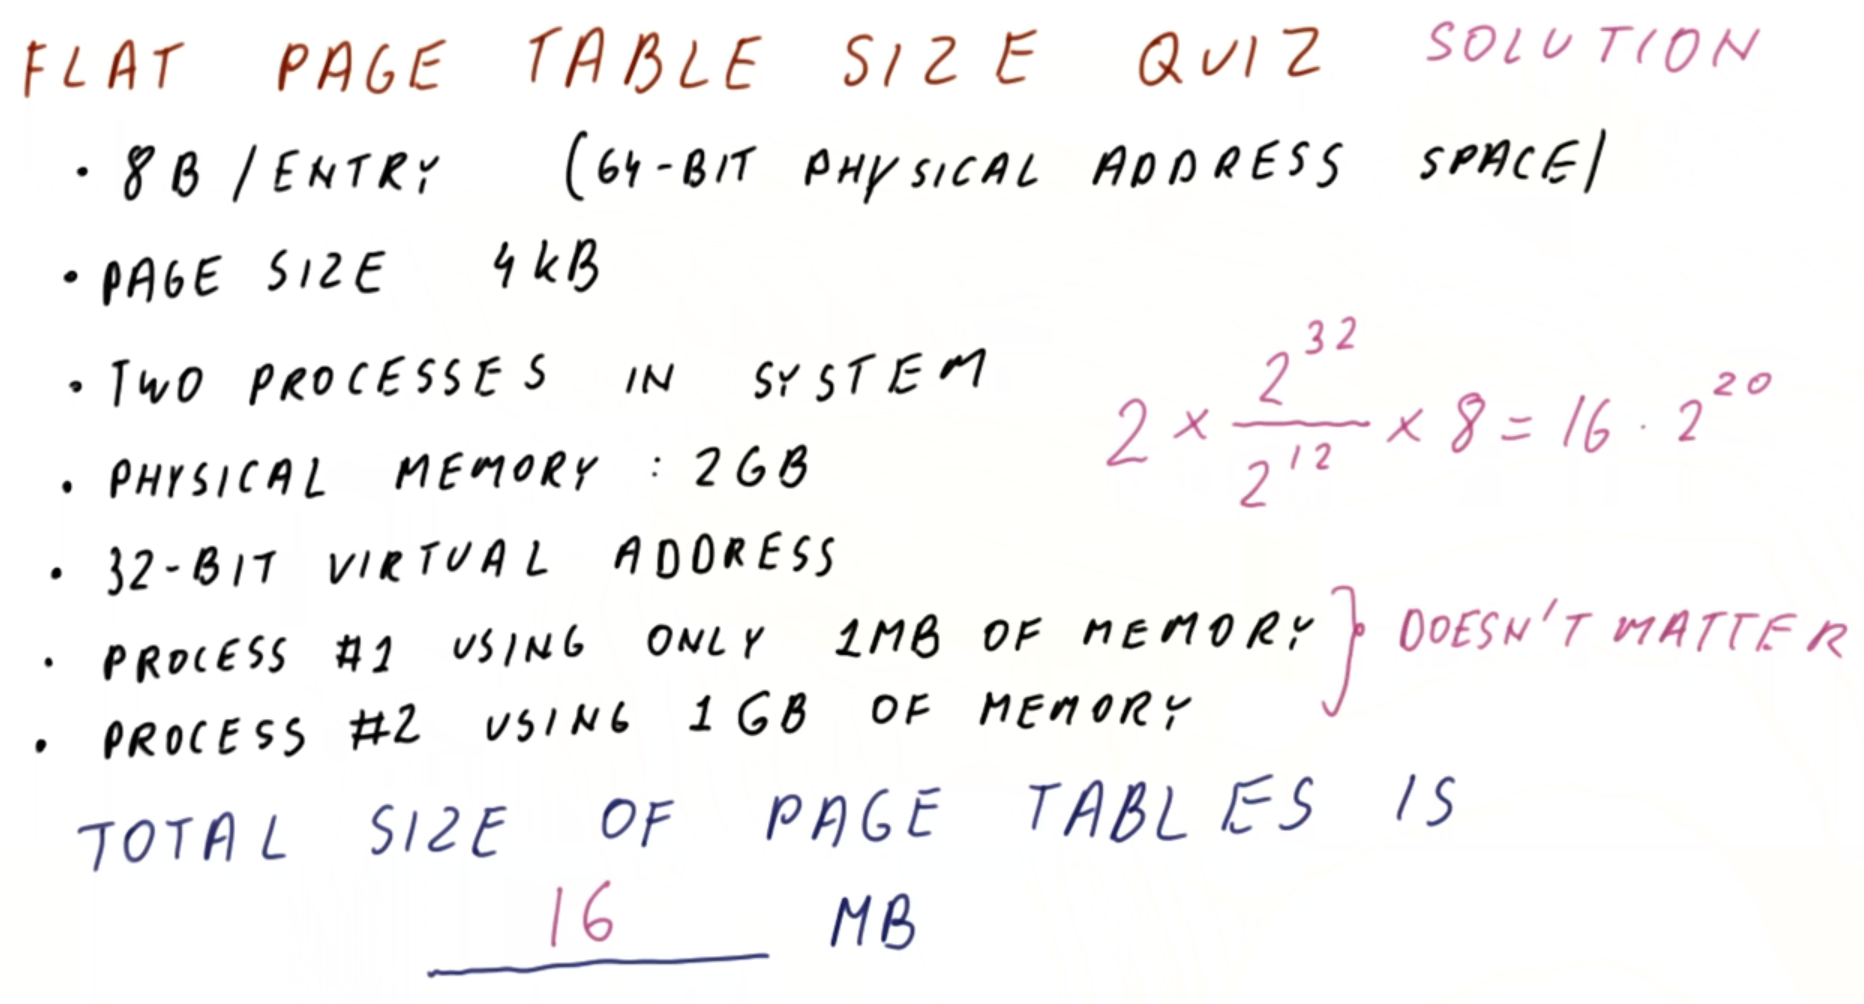 FLAT PAGE TABLE SIZE QUIZ SOLUTION
• 8B/ENTRY (64-BIT PHYSICAL ADDRESS SPACE)
• PAGE SIZE 4kB
• TWO PROCESSES IN SYSTEM
• PHYSICAL MEMORY : 2GB
2 × 2^32 / 2^12 × 8 = 16 · 2^20
• 32-BIT VIRTUAL ADDRESS
• PROCESS #1 USING ONLY 1MB OF MEMORY
• PROCESS #2 USING 1GB OF MEMORY
} DOESN'T MATTER
TOTAL SIZE OF PAGE TABLES IS
16 MB